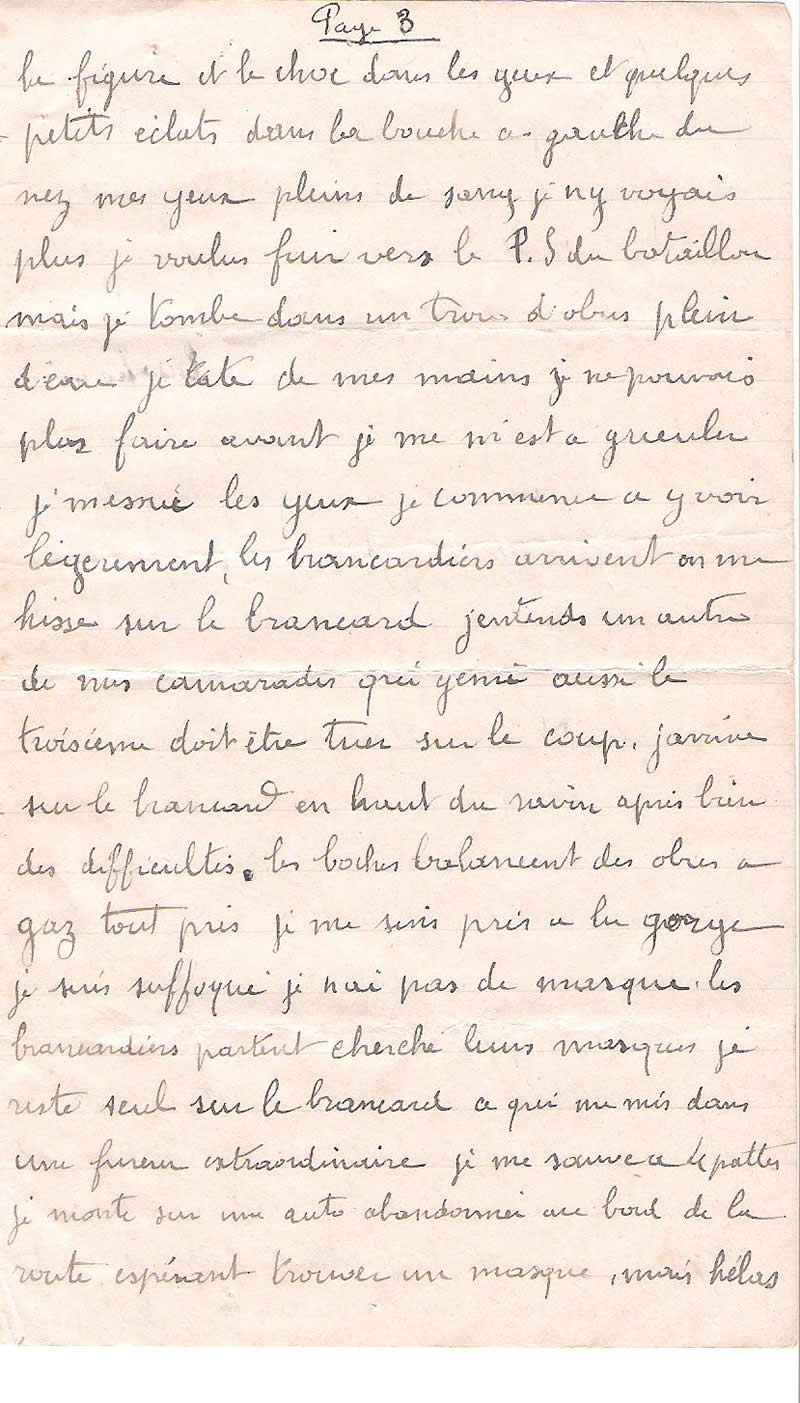 Page 3
la figure et le choc dans les yeux et quelques
petits eclats dans la bouche a gauche du
nez mes yeux pleins de sang je ny voyais
plus je voulus fuir vers le P.S du bataillon
mais je tombe dans un trou d'obus plein
d'eau je tate de mes mains je ne pouvais
plus faire avant je me m'est a gueuler
j'messuie les yeux je commence a y voir
légerement, les brancardiers arrivent on me
hisse sur le brancard jentends un autre
de nos camarades qui gemi aussi le
troisieme doit être tuer sur le coup. jarrive
sur le brancard en haut du ravin apres bien
des difficultés. les boches balancent des obus a
gaz tout pres je me sens prés a la gorge
je suis suffoqué je nai pas de masque. les
brancardiers partent cherché leurs masques je
reste seul sur le brancard ce qui me mis dans
une fureur extraordinaire je me sauve a 4 pattes
je monte sur une auto abandonnei au bord de la
route espérant trouver un masque, mais hélas